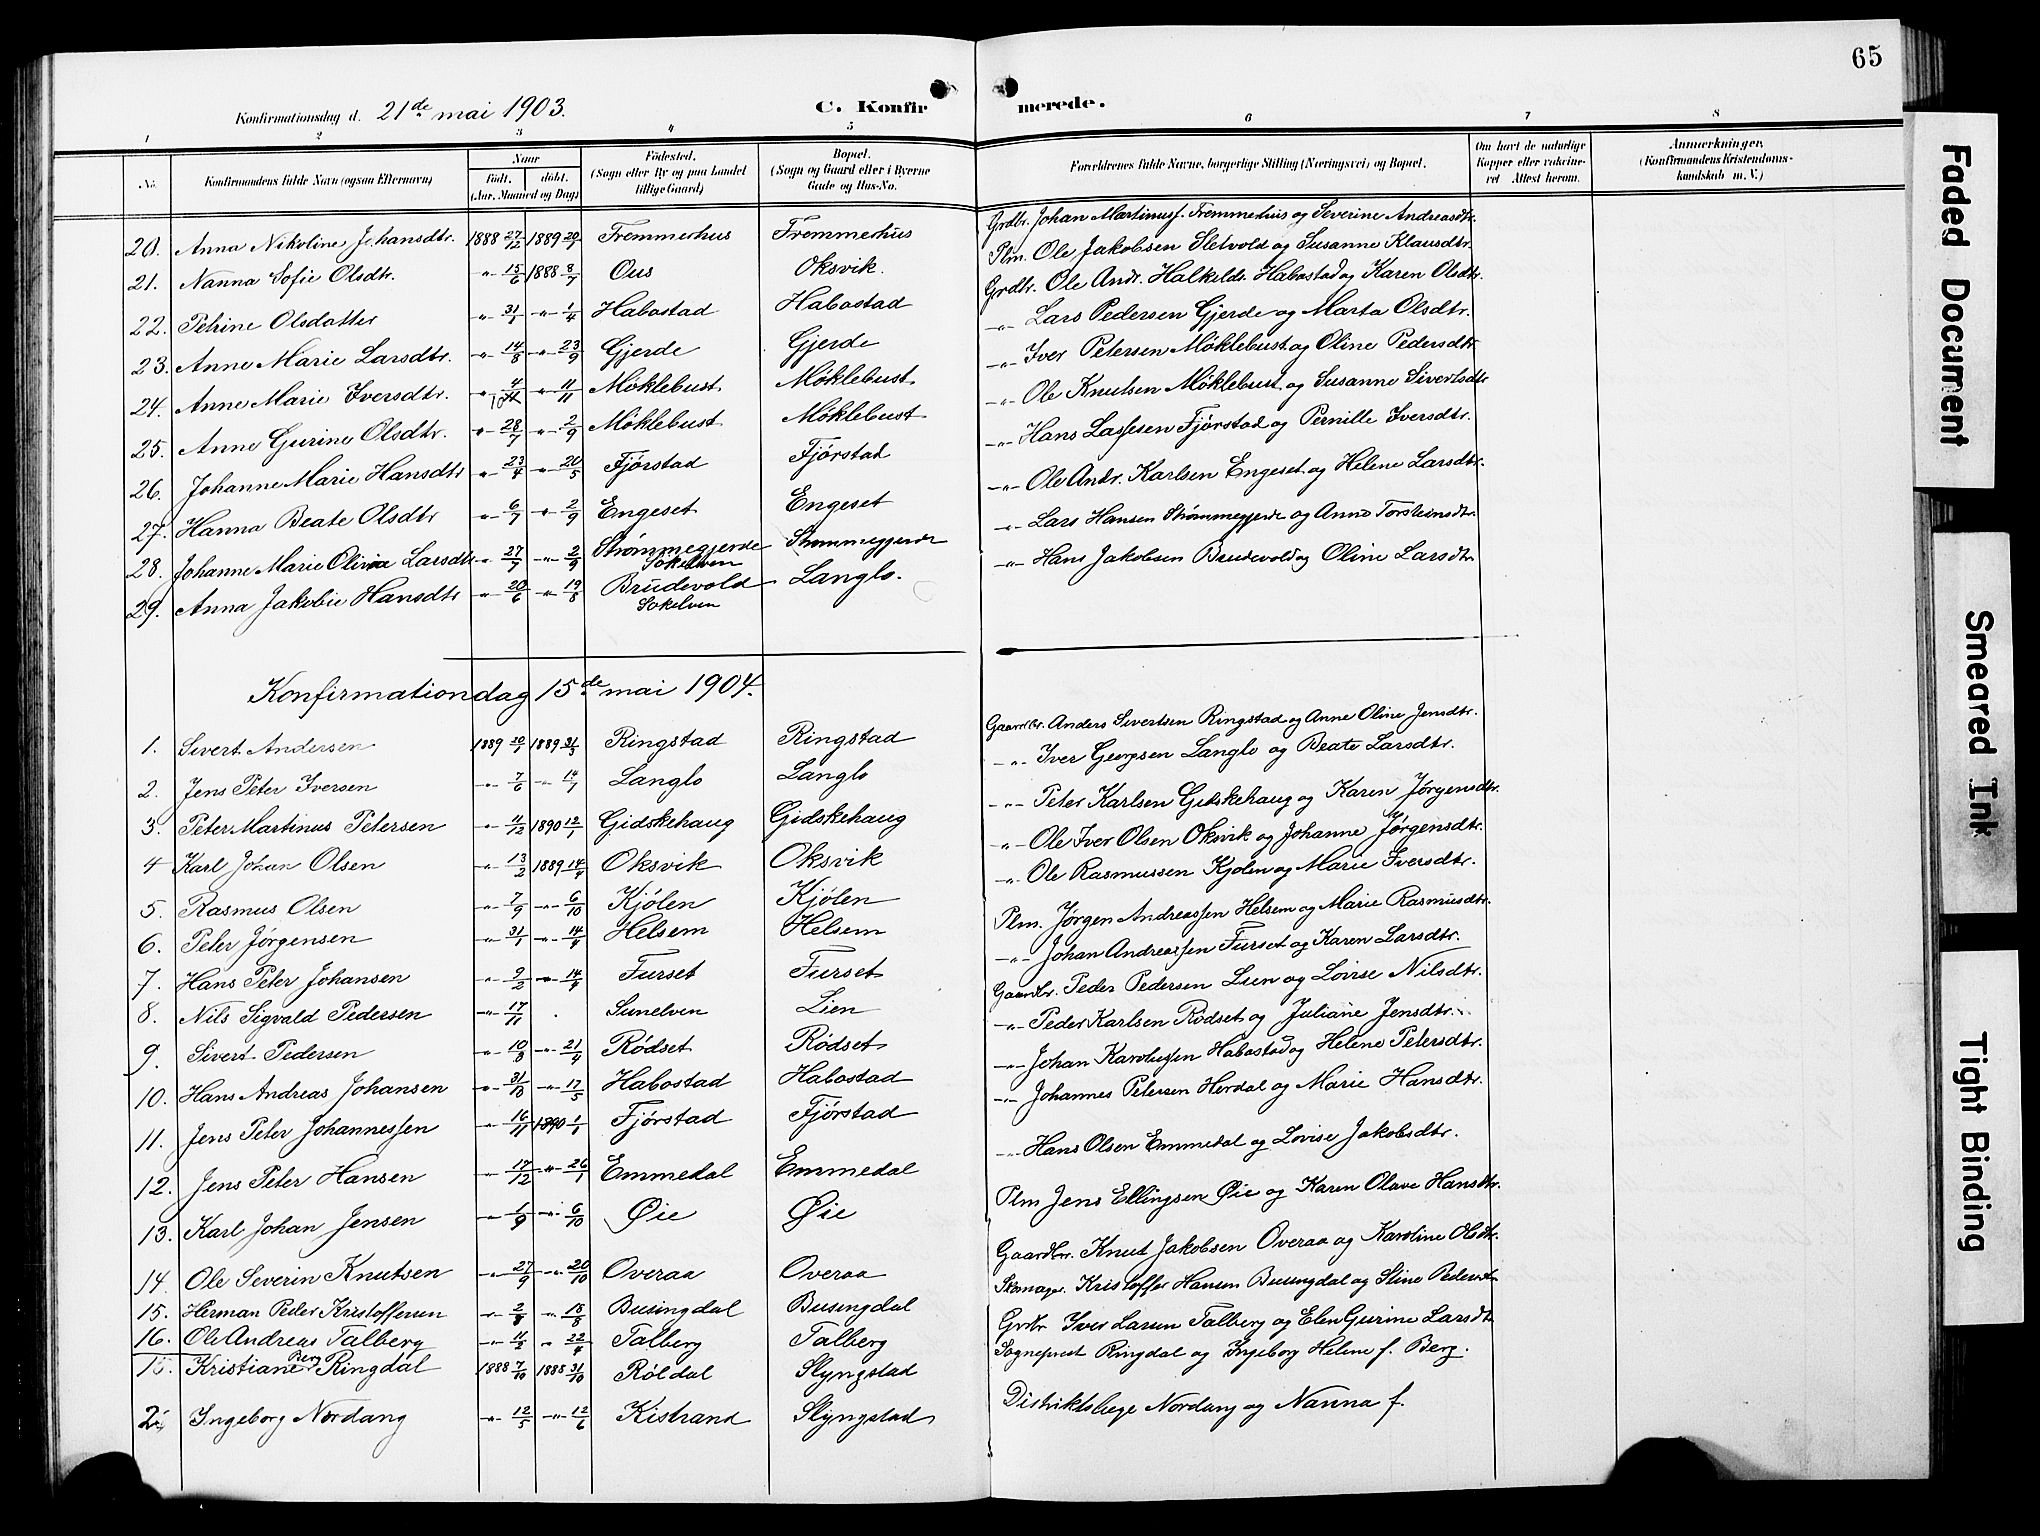 65
Konfirmationsdag d. 21de mai 1903. C. Konfirmerede.
1 2 3 4 5 6 7 8
No. Konfirmandens fulde Navn (ogsaa Efternavn) Naar født. døbt. (Aar, Maaned og Dag) Fødested. (Sogn eller By og paa Landet tillige Gaard) Bopæl. (Sogn og Gaard eller i Byerne Gade og Hus-No. Forældrenes fulde Navne, borgerlige Stilling (Næringsvei) og Bopæl. Om havt de naturlige Kopper eller vaccineret Attest herom. Anmerkninger, (Konfirmandens Kristendomskundskab m. V.)
20. Anna Nikoline Johansdtr. 1888 27/12 1889 20/1 Fremmerhus Fremmerhus Grdbr. Johan Martinusf. Fremmerhus og Severine Andreasdtr.
21. Nanna Sofie Olsdtr. -"- 15/6 1888 8/7 Ous Oksvik. Plm. Ole Jakobsen Sletvold og Susanne Klausdtr.
22. Petrine Olsdatter -"- 31/1 -"- 1/4 Habostad Habostad Grdbr. Ole Andr. Halkilds. Habostad og Karen Olsdtr.
23. Anne Marie Larsdtr. -"- 14/8 -"- 23/9 Gjerde Gjerde -"- Lars Pedersen Gjerde og Marta Olsdtr.
24. Anne Marie Iversdtr. -"- 4/10 -"- 11/11 Møklebust Møklebust -"- Iver Petersen Møklebust og Oline Pedersdtr
25. Anne Gurine Olsdtr. -"- 28/7 -"- 2/9 Møklebust Møklebust -"- Ole Knutsen Møklebust og Susanne Sivertsdtr
26. Johanne Marie Hansdtr -"- 23/4 -"- 20/5 Fjørstad Fjørstad -"- Hans Lassesen Fjørstad og Pernille Iversdtr.
27. Hanna Beate Olsdtr -"- 6/7 -"- 2/9 Engeset Engeset -"- Ole Andr. Karlsen Engeset og Helene Larsdtr.
28. Johanne Marie Olivia Larsdtr -"- 27/7 -"- 2/9 Strømmegjerde Søkelven Strømmegjerde -"- Lars Hansen Strømmegjerde og Anne Torsteinsdtr.
29. Anna Jakobie Hansdtr -"- 20/6 -"- 19/8 Brudevold Søkelven Langlo. -"- Hans Jakobsen Brudevold og Oline Larsdtr
Konfirmationdag 15de mai 1904.
1. Sivert Andersen 1889 20/1 1889 31/3 Ringstad Ringstad Gaardbr. Anders Sivertsen Ringstad og Anne Oline Jensdtr.
2. Jens Peter Iversen -"- 7/6 -"- 14/7 Langlo Langlo -"- Iver Georgsen Langlo og Beate Larsdtr.
3. Peter Martinus Petersen -"- 11/12 1890 12/1 Gidskehaug Gidskehaug -"- Peter Karlsen Gidskehaug og Karen Jørgensdtr
4 Karl Johan Olsen -"- 13/2 1889 14/4 Oksvik Oksvik -"- Ole Iver Olsen Oksvik og Johanne Jørgensdtr.
5. Rasmus Olsen -"- 7/9 -"- 6/10 Kjølen Kjølen -"- Ole Rasmussen Kjølen og Marie Iversdtr.
6. Peter Jørgensen -"- 31/1 -"- 14/4 Helsem Helsem Plm. Jørgen Andreassen Helsem og Marie Rasmusdtr.
7. Hans Peter Johansen -"- 9/2 -"- 14/4 Furset Furset -"- Johan Andreassen Furset og Karen Larsdtr.
8. Nils Sigvald Pedersen -"- 17/11 . Sunelven Lien Gaardbr. Peder Pedersen Lien og Lovise Nilsdtr.
9. Sivert Pedersen -"- 10/3 -"- 21/4 Rødset Rødset -"- Peder Karlsen Rødset og Juliane Jensdtr.
10. Hans Andreas Johansen -"- 31/3 -"- 17/5 Habostad Habostad -"- Johan Karolussen Habostad og Helene Petersdtr.
11. Jens Peter Johannessen -"- 16/11 1890 1/1 Fjørstad Fjørstad -"- Johannes Petersen Herdal og Marie Hansdtr.
12. Jens Peter Hansen -"- 17/12 -"- 26/1 Emmedal Emmedal -"- Hans Olsen Emmedal og Lovise Jakobsdtr.
13. Karl Johan Jensen -"- 1/9 -"- 6/10 Øie Øie Plm Jens Ellingsen Øie og Karen Olave Hansdtr.
14 Ole Severin Knutsen -"- 27/9 -"- 20/10 Overaa Overaa Gaardbr. Knut Jakobsen Overaa og Karoline Olsdtr.
15. Herman Peder Kristoffersen -"- -"- Busingdal Busingdal Skomager. Kristoffer Hansen Busingdal og Stine Pedersdtr
16. Ole Andreas Talberg -"- 11/2 " 22/4 Talberg Talberg Grdbr Iver Larsen Talberg og Elen Gurine Larsdtr
Kristiane Berg Ringdal 1888 7/10 1888 31/10 Røldal Slyngstad Sogneprest Ringdal og Ingeborg Helene f. Berg.
2. Ingeborg Nordang -"- 12/5 -"- 12/6 Kistrand Slyngstad Distriktslæge Nordang og Nanna f.
Faded Document
Smeared Ink
Tight Binding